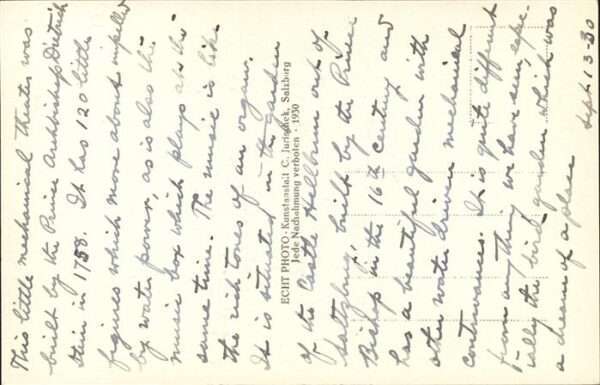 This little mechanical theater was
built by the Prince Archbishop Dietrich
stein in 1758. It has 120 little
figures which move about impelled
by water power as is also the
music box which plays at the
same time. The music is like
the rich tones of an organ.
It is situated in the garden
of the Castle Hellbrun out of
Saltzburg, built by the Prince
Bishop in the 16th century and
has a beautiful garden with
other water driven mechanical
contrivances. It is quite different
from anything we have seen, espe-
cially the bird garden which was
a dream of a place
Sept 13-30
ECHT PHOTO - Kunstanstalt C. Jurischek, Salzburg
Jede Nachahmung verboten - 1930